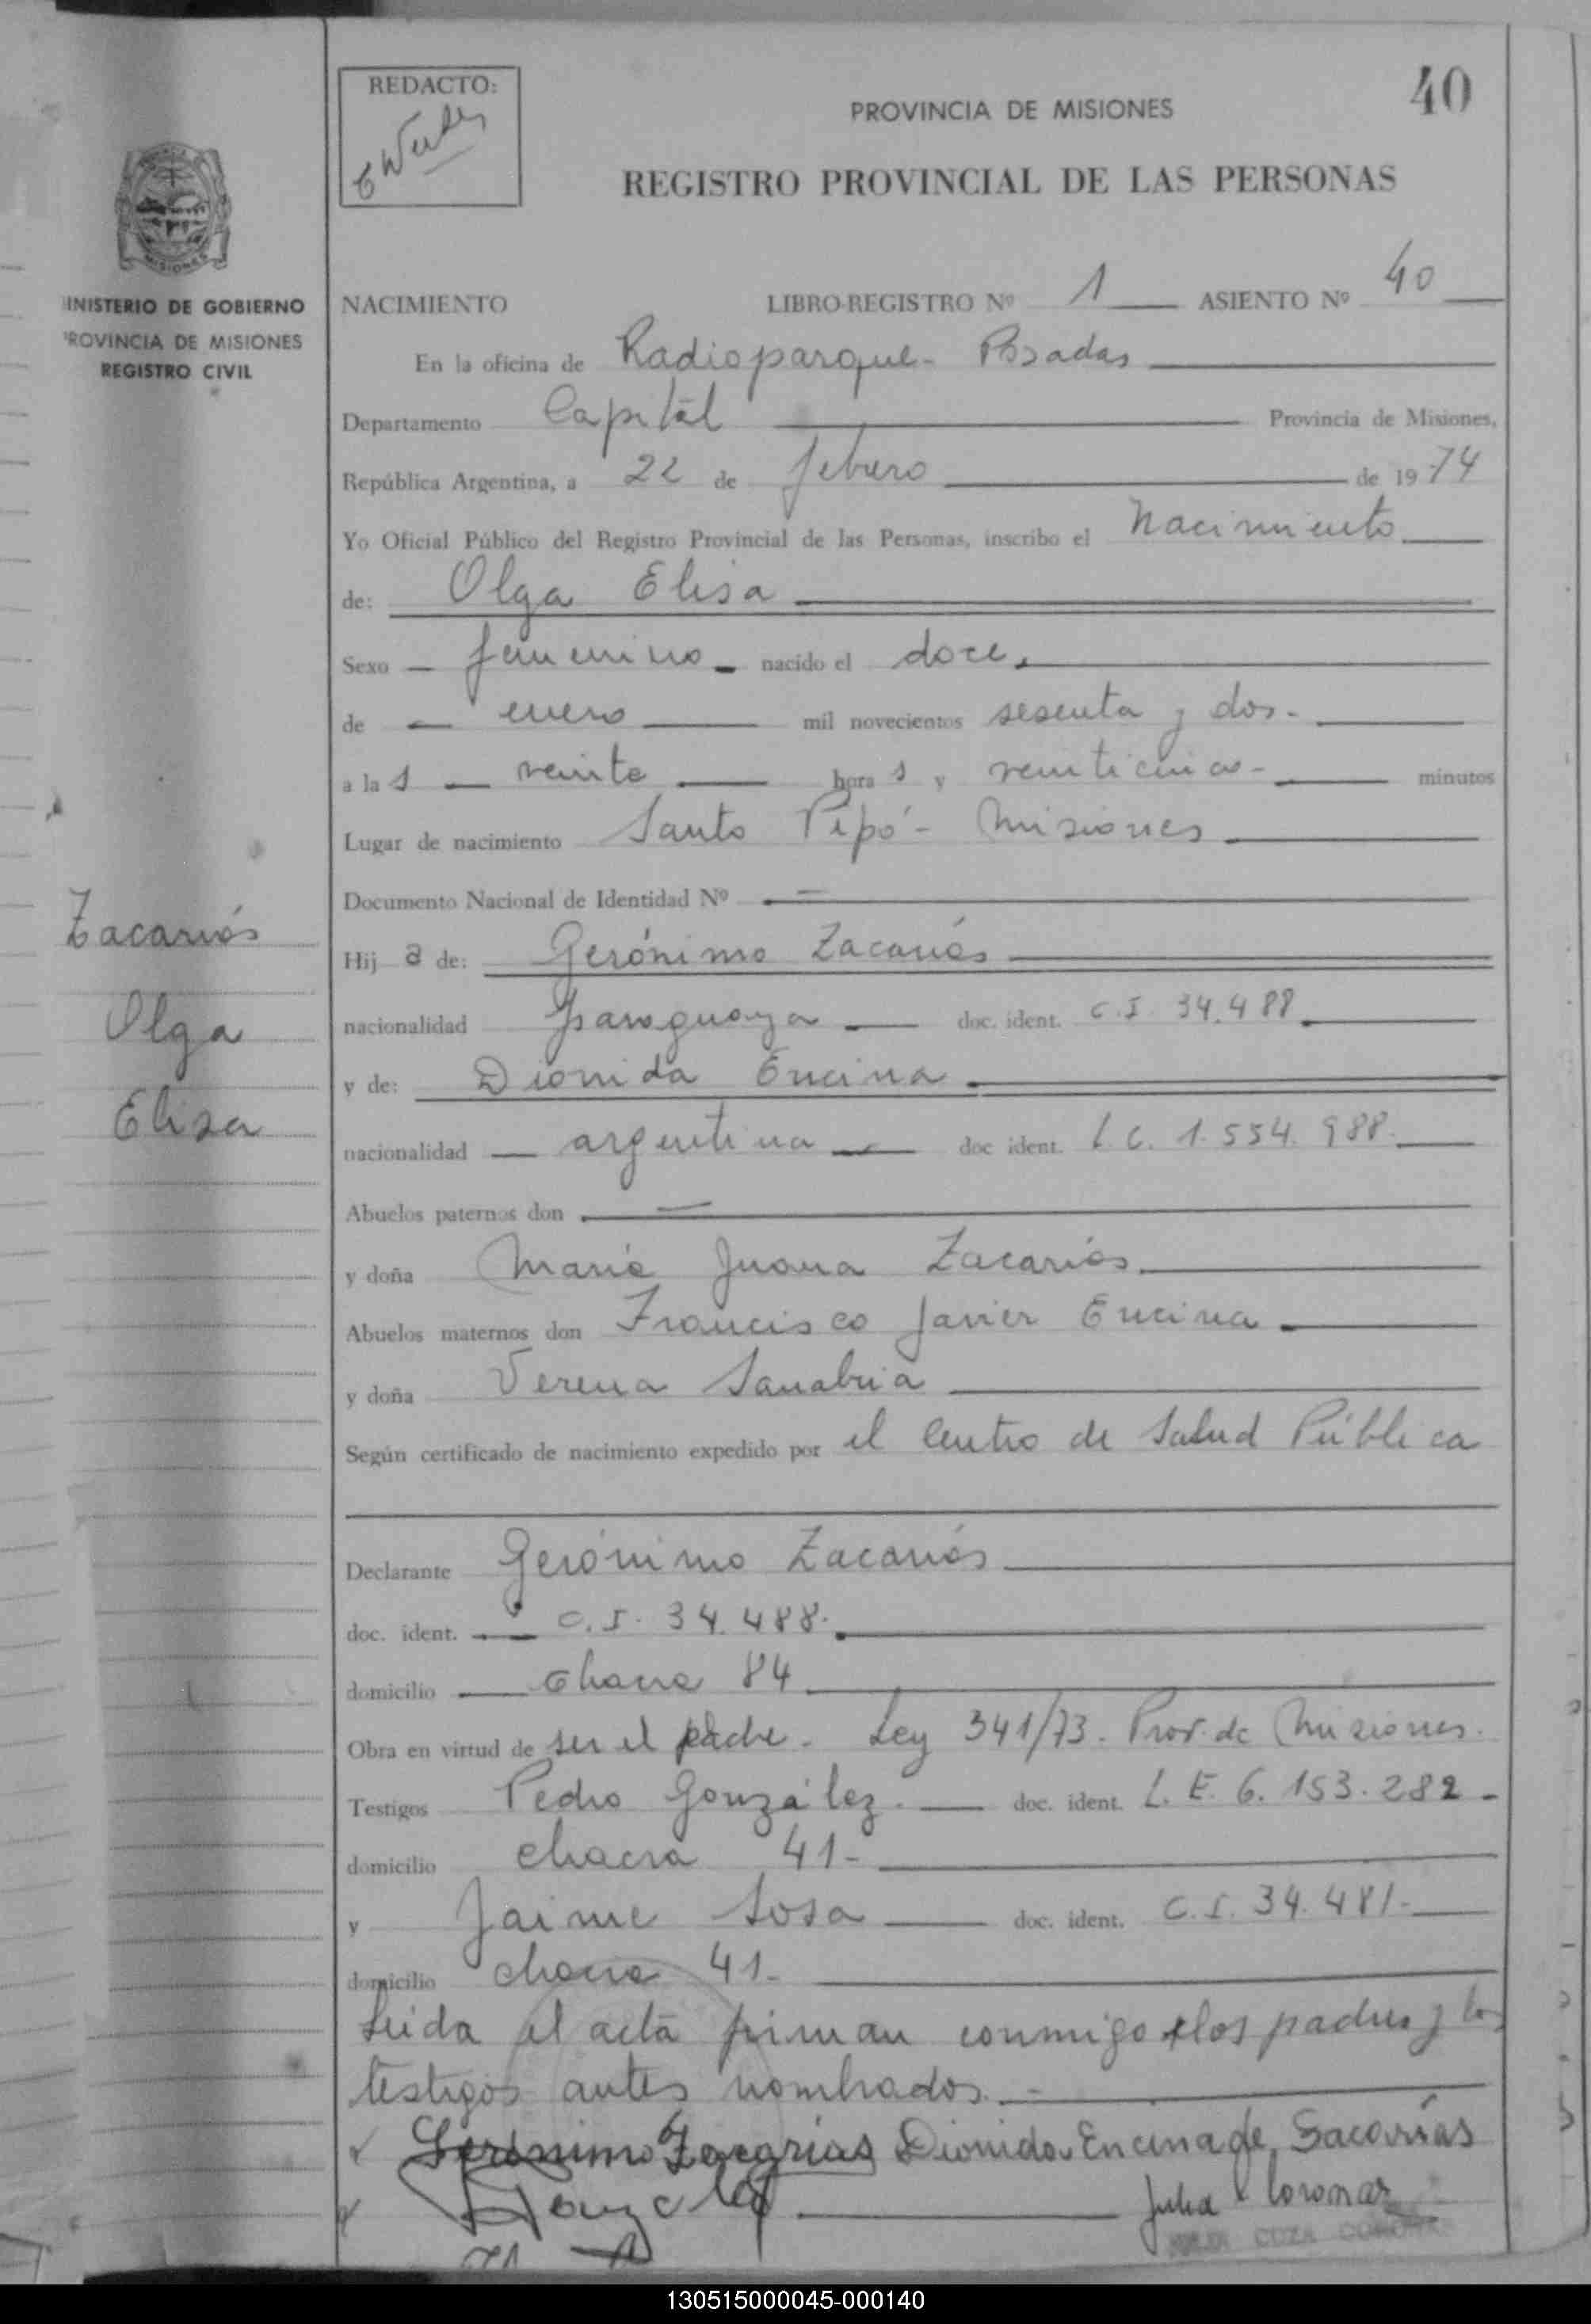 REDACTO:
PROVINCIA DE MISIONES
40
REGISTRO PROVINCIAL DE LAS PERSONAS
MISIONES
INISTERIO DE GOBIERNO
ROVINCIA DE MISIONES
REGISTRO CIVIL
NACIMIENTO LIBRO-REGISTRO Nº 1 ASIENTO Nº 40
En la oficina de Radioparque - Posadas
Departamento Capital Provincia de Misiones,
República Argentina, a 22 de febrero de 1974
Yo Oficial Público del Registro Provincial de las Personas, inscribo el Nacimiento
de: Olga Elisa
Sexo femenino - nacido el doce
de enero mil novecientos sesenta y dos -
a la s veinte hora s y veinticinco - minutos
Lugar de nacimiento Santo Pipó - Misiones
Documento Nacional de Identidad Nº —
Zacarías
Olga
Elisa
Hij a de: Gerónimo Zacarías
nacionalidad paraguaya doc. ident. C.I. 34.488
y de: Dionida Encina
nacionalidad argentina doc ident. L.C. 1.554.988.
Abuelos paternos don —
y doña María Juana Zacarías
Abuelos maternos don Francisco Javier Encina
y doña Verena Sanabria
Según certificado de nacimiento expedido por el Centro de Salud Pública
Declarante Gerónimo Zacarías
doc. ident. C.I. 34.488.
domicilio Chacra 84
Obra en virtud de ser el padre. Ley 341/73. Prov. de Misiones.
Testigos Pedro González. doc. ident. L.E. 6.153.282 -
domicilio chacra 41 -
y Jaime Sosa doc. ident. C.I. 34.481 -
domicilio chacra 41 -
Leida el acta firman conmigo los padres y los
testigos antes nombrados. -
Gerónimo Zacarías Dionida Encina de Sacarías
Gonzalez Julia Coronas
CUZA
130515000045-000140